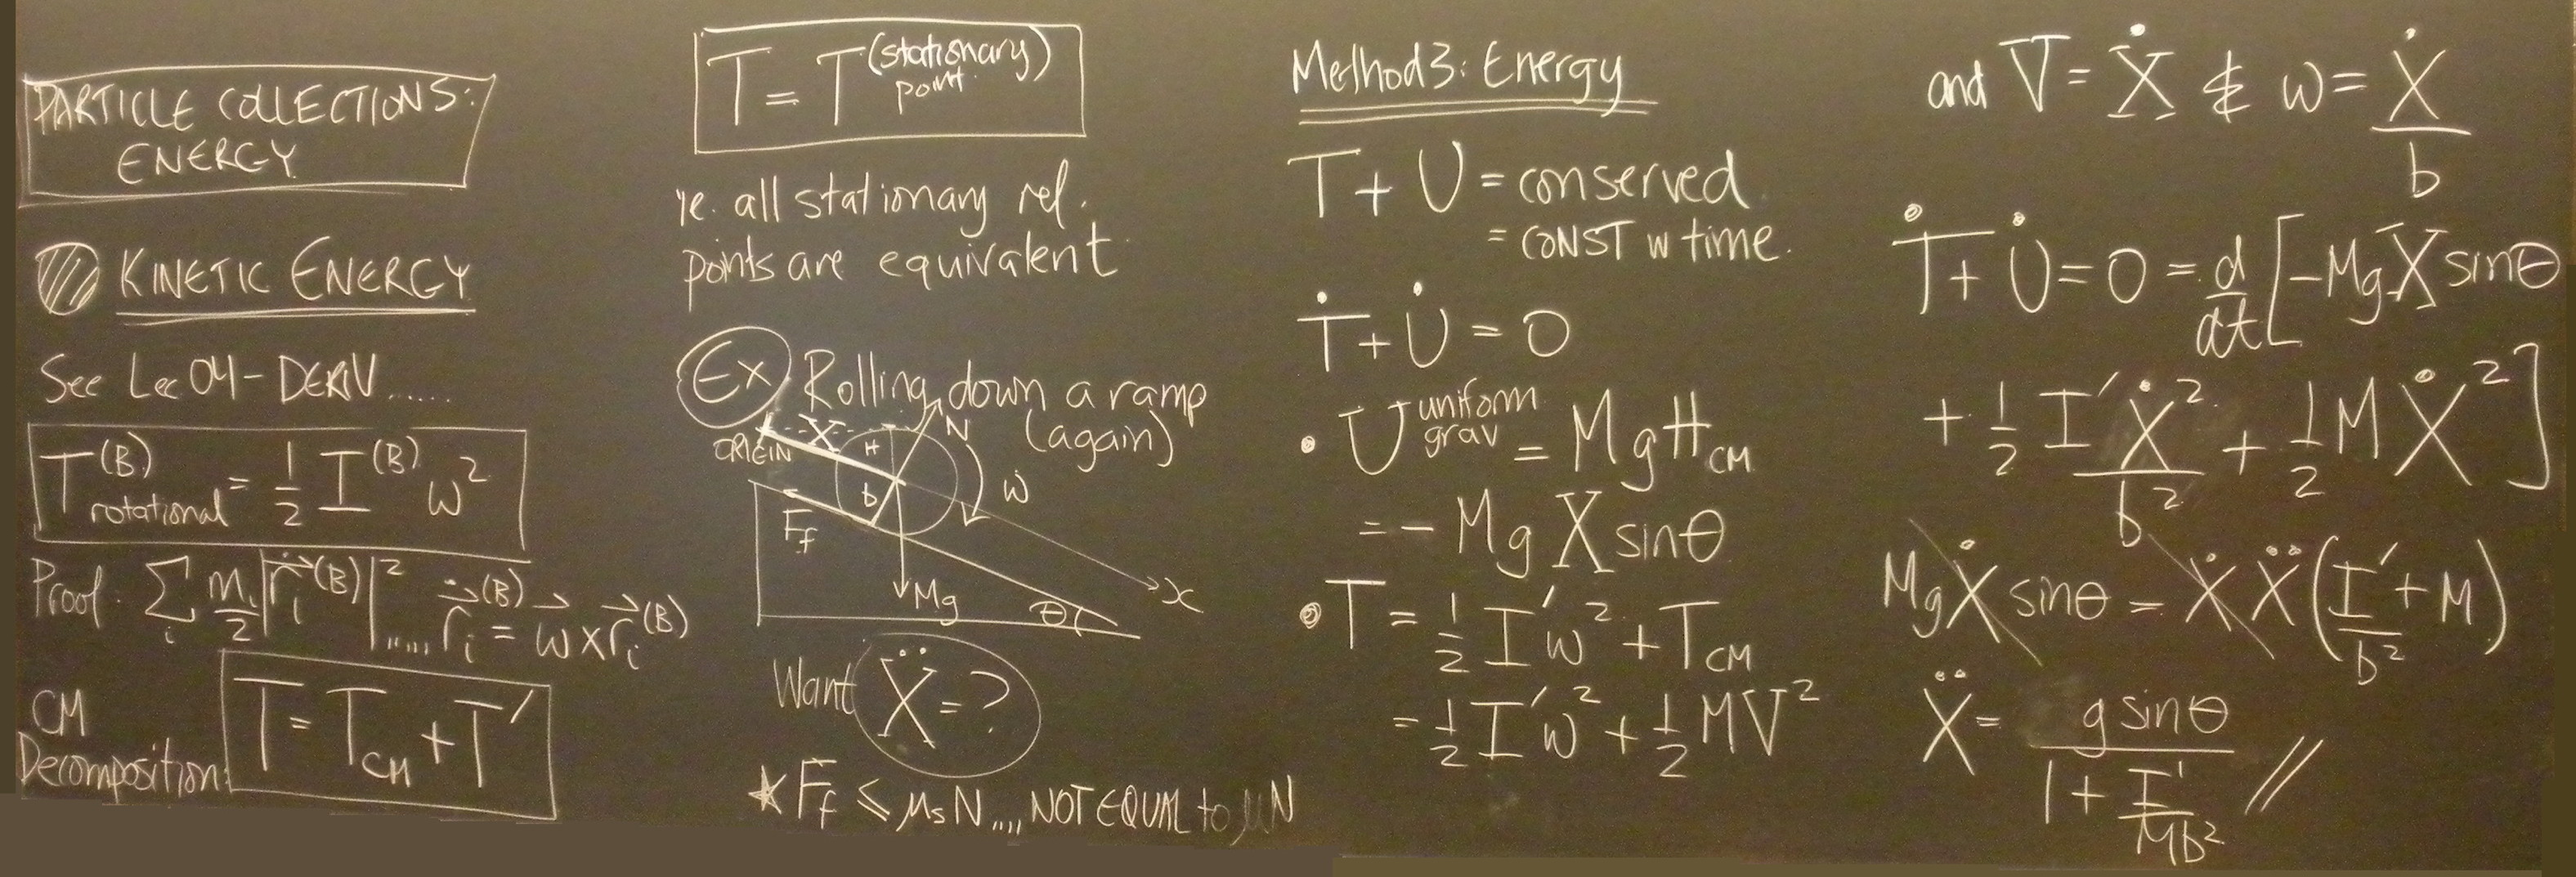 PARTICLE COLLECTIONS:
ENERGY
KINETIC ENERGY
See Lec 04 - DERIV......
T^(B)_rotational = 1/2 I^(B) ω²
Proof: Σ_i m_i/2 |ṙ⃗_i^(B)|² ,.... ṙ⃗_i^(B) = ω⃗ × r⃗_i^(B)
CM
Decomposition: T = T_CM + T′
T = T^(stationary point)
ie. all stationary rel.
points are equivalent
Ex Rolling down a ramp
(again)
ORIGIN
X
H
N
b
ω
F_f
Mg
θ
x
Want Ẍ = ?
★ F_f ≤ μ_s N ,,,, NOT EQUAL to μN
Method 3: Energy
T + U = conserved
= CONST w time.
Ṫ + U̇ = 0
• U^uniform grav = MgH_CM
= - Mg X sinθ
• T = 1/2 I′ω² + T_CM
= 1/2 I′ω² + 1/2 MV²
and V = Ẋ & ω = Ẋ/b
Ṫ + U̇ = 0 = d/dt [-MgX sinθ
+ 1/2 I′ Ẋ²/b² + 1/2 M Ẋ²]
MgẊ sinθ = ẊẌ (I′/b² + M)
Ẍ = g sinθ / (1 + I′/Mb²) //